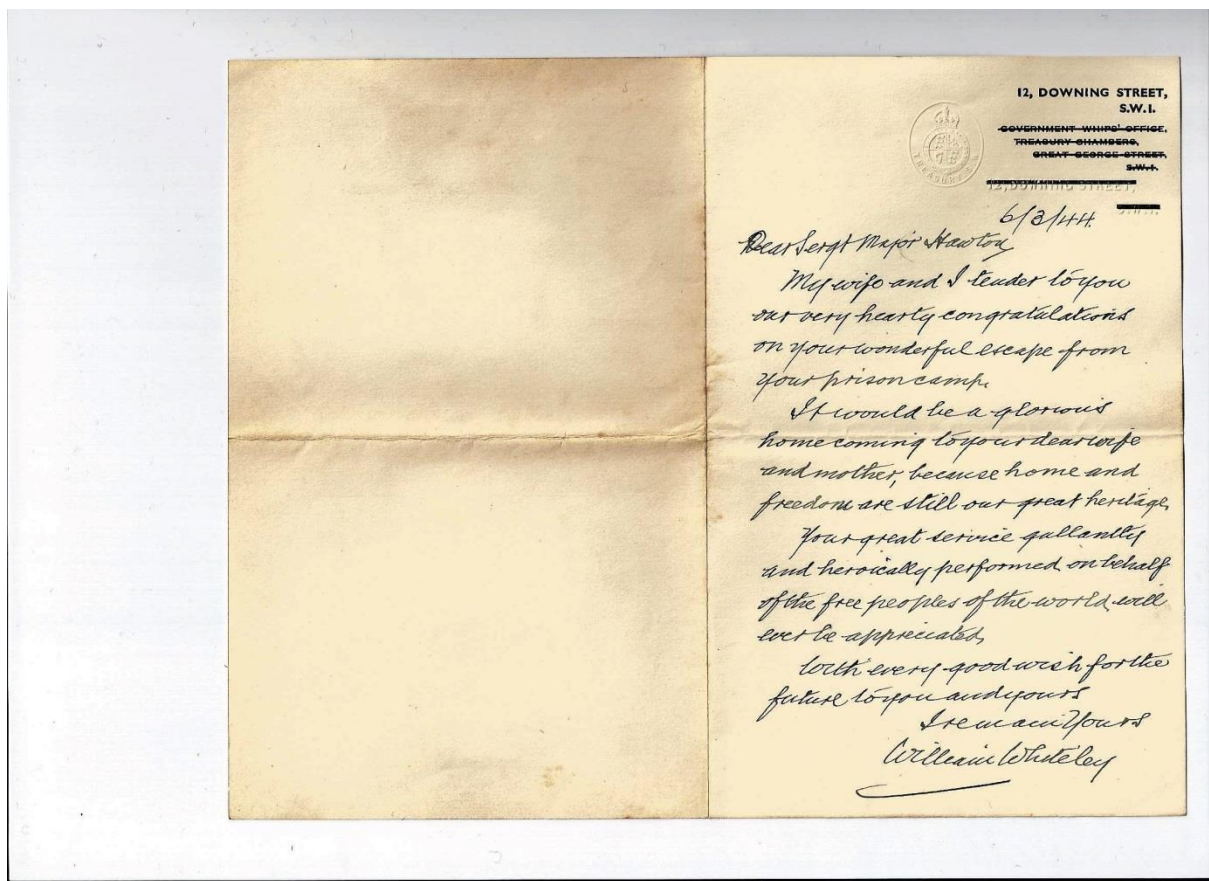 12, DOWNING STREET,
S.W.1.
GOVERNMENT WHIPS' OFFICE,
TREASURY CHAMBERS,
GREAT GEORGE STREET,
S.W.1.
12, DOWNING STREET,
S.W.1.
TREASURY S.W.
6/3/44.
Dear Sergt Major Hawton
My wife and I tender to you
our very hearty congratulations
on your wonderful escape from
your prison camp.
It would be a glorious
home coming to your dear wife
and mother, because home and
freedom are still our great heritage.
Your great service gallantly
and heroically performed on behalf
of the free peoples of the world will
ever be appreciated.
With every good wish for the
future to you and yours
I remain Yours
William Whiteley